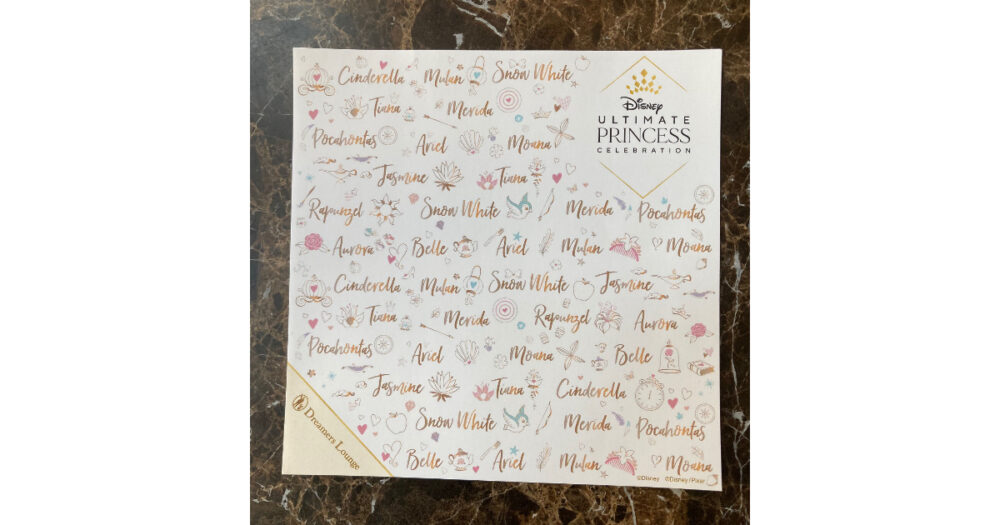 Cinderella Mulan Snow White
Disney
ULTIMATE
PRINCESS
CELEBRATION
Tiana Merida
Pocahontas Ariel Moana
Jasmine Tiana
Rapunzel Snow White Merida Pocahontas
Aurora Belle Ariel Mulan Moana
Cinderella Mulan Snow White Jasmine
Tiana Merida Rapunzel Aurora
Pocahontas Ariel Moana Belle
Jasmine Tiana Cinderella
Snow White Merida Pocahontas
Belle Ariel Mulan Moana
Dreamers Lounge
©Disney ©Disney/Pixar